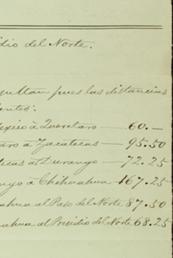 dio del Norte.
sultan pues las distancias
entes:
exico à Queretaro — 60. —
aro à Zacatecas — 95.50
tecas à Durango — 72.25
ngo à Chihuahua — 167.25
ahua al Paso del Norte 87.50
ahua al Presidio del Norte 68.25